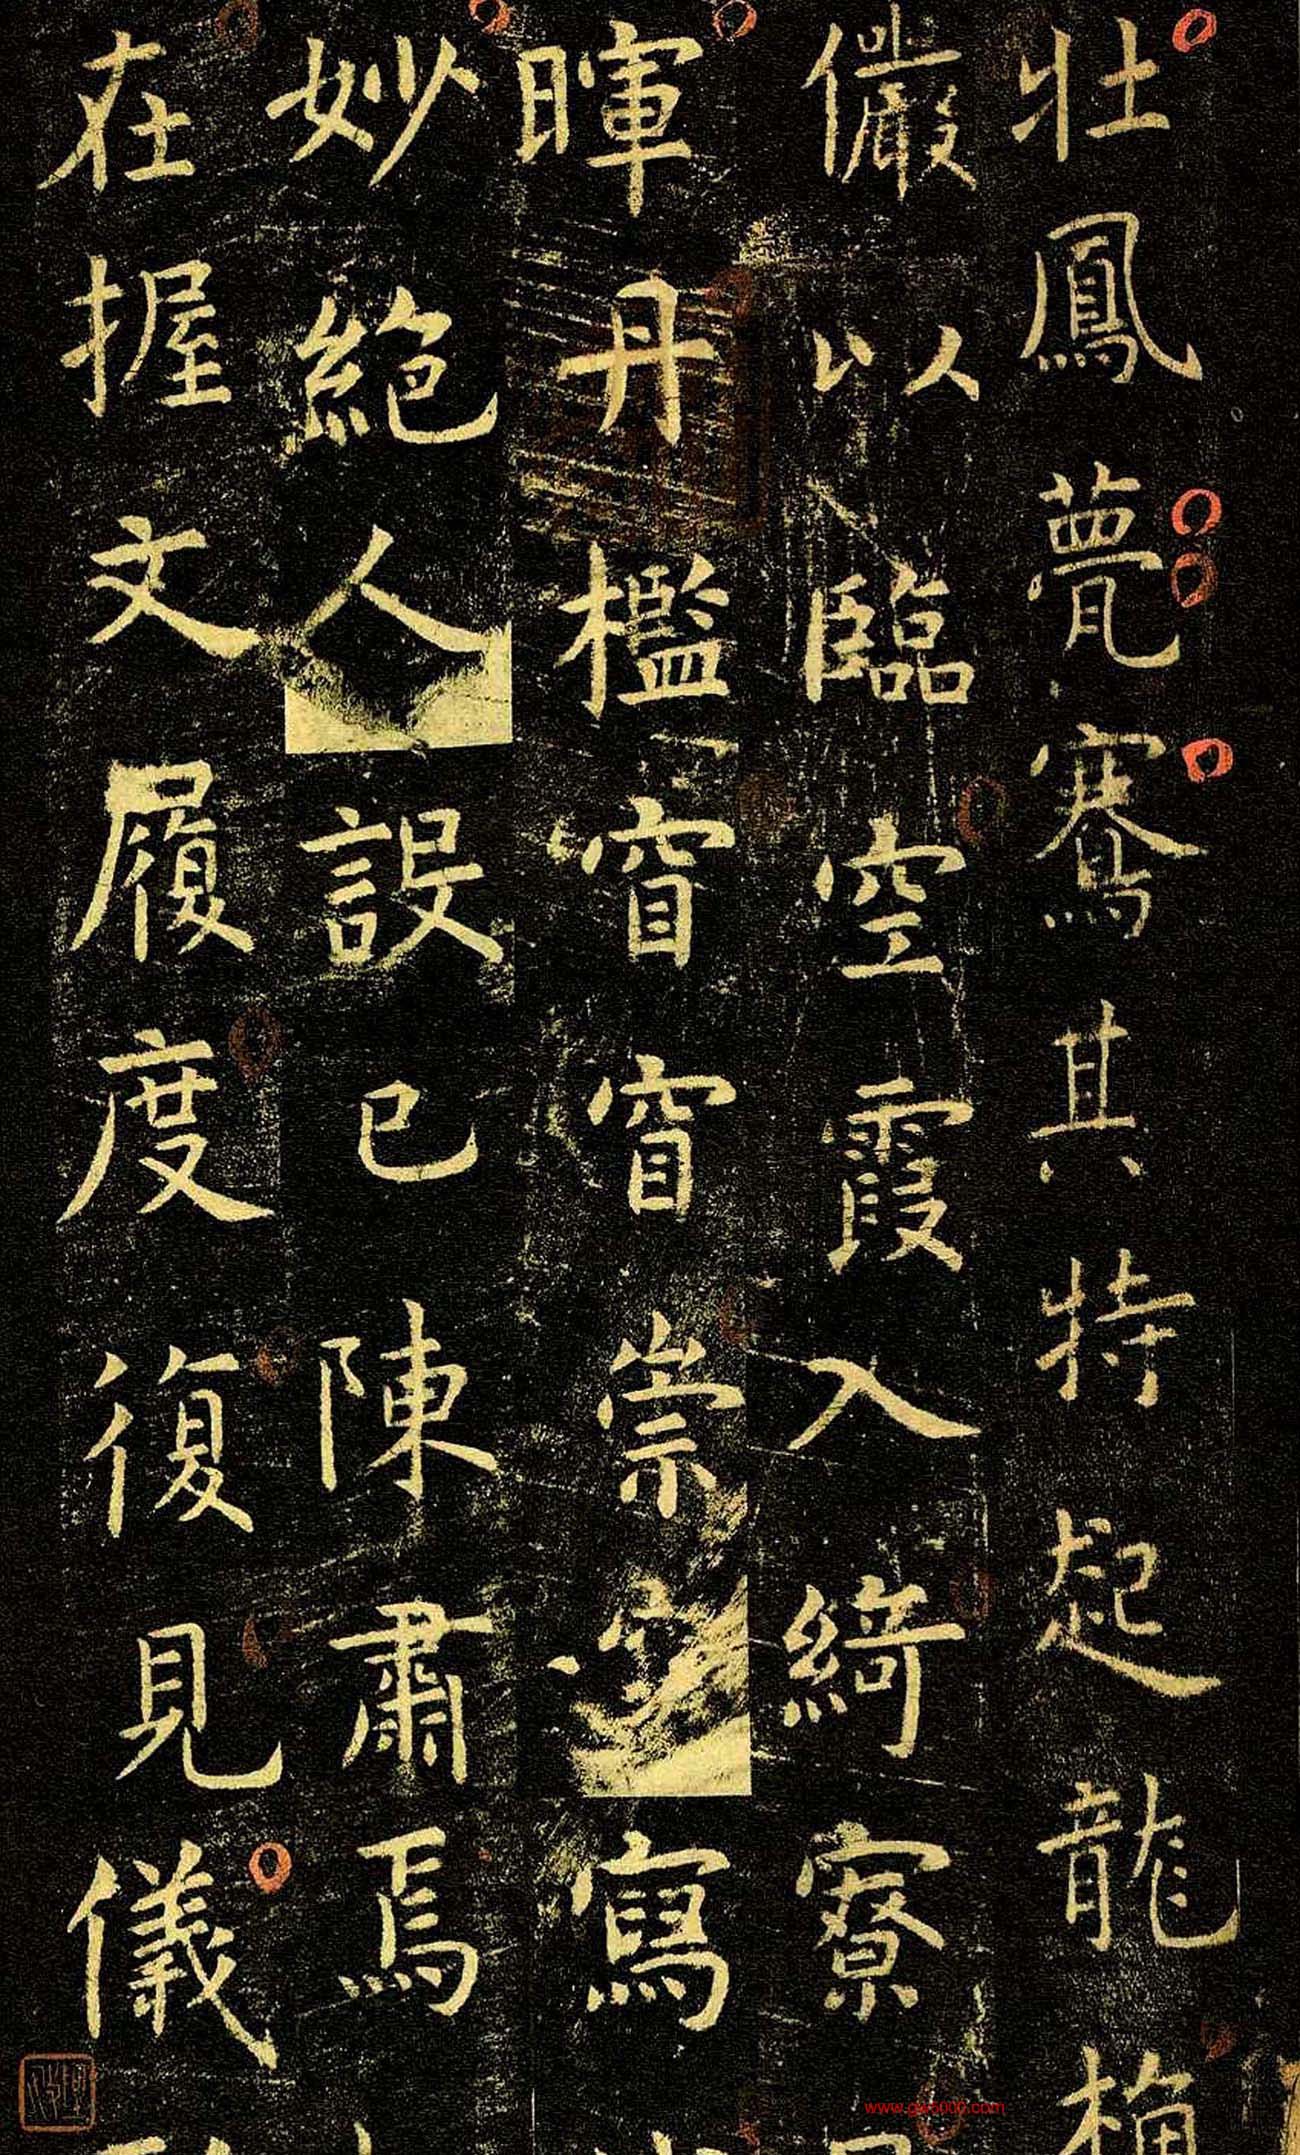 壯鳳甍騫其特起龍桷
儼以臨空霞入綺寮
暉丹檻窅窅崇寫
妙絕人設已陳肅焉
在握文履度復見儀